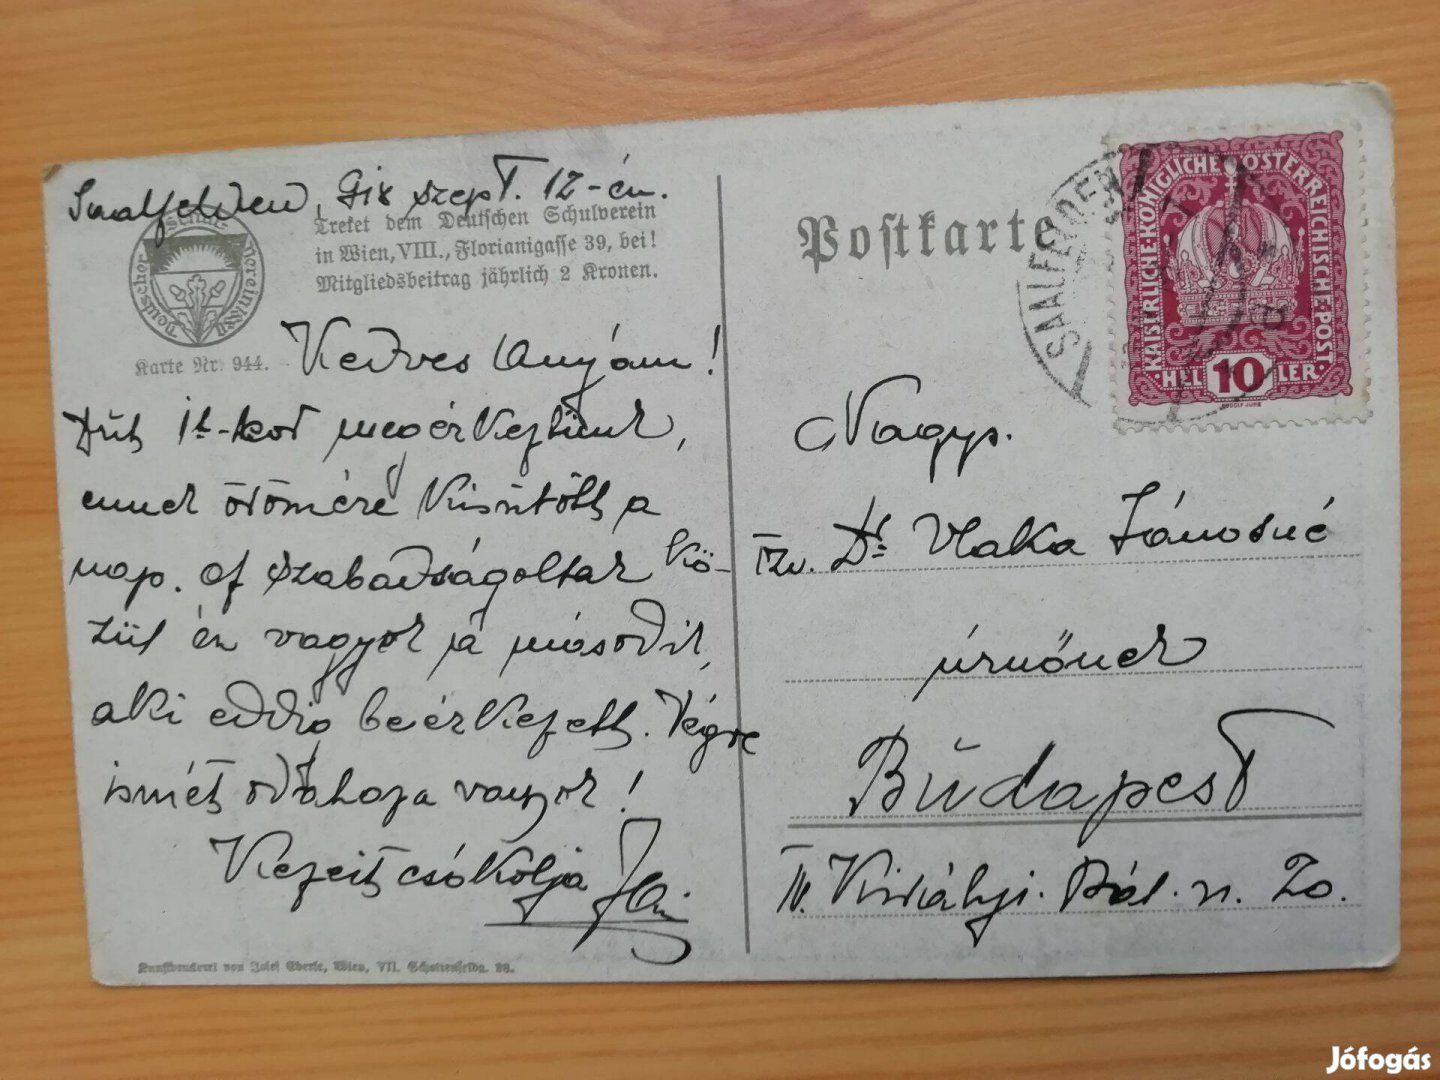 Saalfelden, 918 szept. 12-én.
Tretet dem Deutschen Schulverein
in Wien, VIII., Florianigasse 39, bei!
Mitgliedsbeitrag jährlich 2 Kronen.
Deutscher Schulverein
Karte Nr. 944.
Kedves Anyám!
Dút 1h-kor megérkeztünk,
ennek örömére kisütött a
nap. Af szabadságoltak kö-
zül én vagyok a második,
aki eddig beérkezett. Végre
ismét odahaza vagyok!
Kezeit csókolja
Kunstdruckerei von Josef Eberle, Wien, VII. Schottenfeldg. 38.
Postkarte
SAALFELDEN
KAISERLICHE·KÖNIGLICHE ÖSTERREICHISCHE·POST
HELLER 10
RUDOLF JUNK
Nagys.
özv. Dr. Vlaka Jánosné
úrnőnek
Budapest
IV. Királyi Pál u. 20.
Jófogás